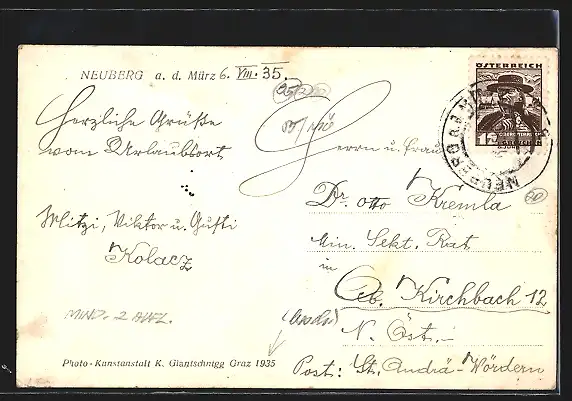 NEUBERG a. d. Mürz 6. VIII. 35.
Herzliche Grüße
vom Urlaubsort
Mitzi, Viktor u. Gusti
Kolacz
MIND. 2 AUFL.
Photo-Kunstanstalt K. Glantschnigg Graz 1935
ÖSTERREICH
12
NEUBERG
Herrn u. Frau
Dr. Otto Kremla
Min. Sekt. Rat
in
Ob. Kirchbach 12
N. Öst.
Post: St. Andrä-Wördern